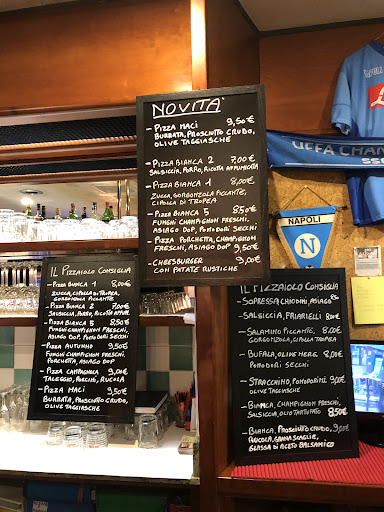 NOVITA'
- PIZZA MACI 9,50€
BURRATA, PROSCIUTTO CRUDO,
OLIVE TAGGIASCHE
- PIZZA BIANCA 2 7,00€
SALSICCIA, PORRO, RICOTTA AFFUMICATA
- PIZZA BIANCA 1 8,00€
ZUCCA, GORGONZOLA PICCANTE,
CIPOLLA DI TROPEA
- PIZZA BIANCA 5 8,50€
FUNGHI CHAMPIGNON FRESCHI,
ASIAGO DOP, POMODORI SECCHI
- PIZZA PORCHETTA, CHAMPIGNON
FRESCHI, ASIAGO DOP 9,50€
- CHEESBURGER 9,00€
CON PATATE RUSTICHE
IL PIZZAIOLO CONSIGLIA
- PIZZA BIANCA 1 8,00€
ZUCCA, CIPOLLA DI TROPEA,
GORGONZOLA PICCANTE
- PIZZA BIANCA 2 7,00€
SALSICCIA, PORRO, RICOTTA AFFUM
- PIZZA BIANCA 5 8,50€
FUNGHI CHAMPIGNON FRESCHI,
ASIAGO DOP, POMODORI SECCHI
- PIZZA AUTUNNO 9,50€
FUNGHI CHAMPIGNON FRESCHI,
PORCHETTA, ASIAGO DOP
- PIZZA CAMPAGNOLA 9,00€
TALEGGIO, PORCINI, RUCOLA
- PIZZA MACI 9,50€
BURRATA, PROSCIUTTO CRUDO,
OLIVE TAGGIASCHE
UEFA CHAM
NAPOLI
N
IL PIZZAIOLO CONSIGLIA
- SOPRESSA CHIODINI, ASIAGO 8,50
- SALSICCIA, FRIARIELLI 8,00€
- SALAMINO PICCANTE, 8,00€
GORGONZOLA, CIPOLLA TROPEA
- BUFALA, OLIVE NERE, 8,00€
POMODORI SECCHI
- STRACCHINO, POMODORINI 9,00€
OLIVE TAGGIASCHE
- BIANCA, CHAMPIGNON FRESCHI,
SALSICCIA, OLIO TARTUFATO 8,50€
- BIANCA, PROSCIUTTO CRUDO, 9,00€
RUCOLA, GRANA SCAGLIE,
GLASSA DI ACETO BALSAMICO